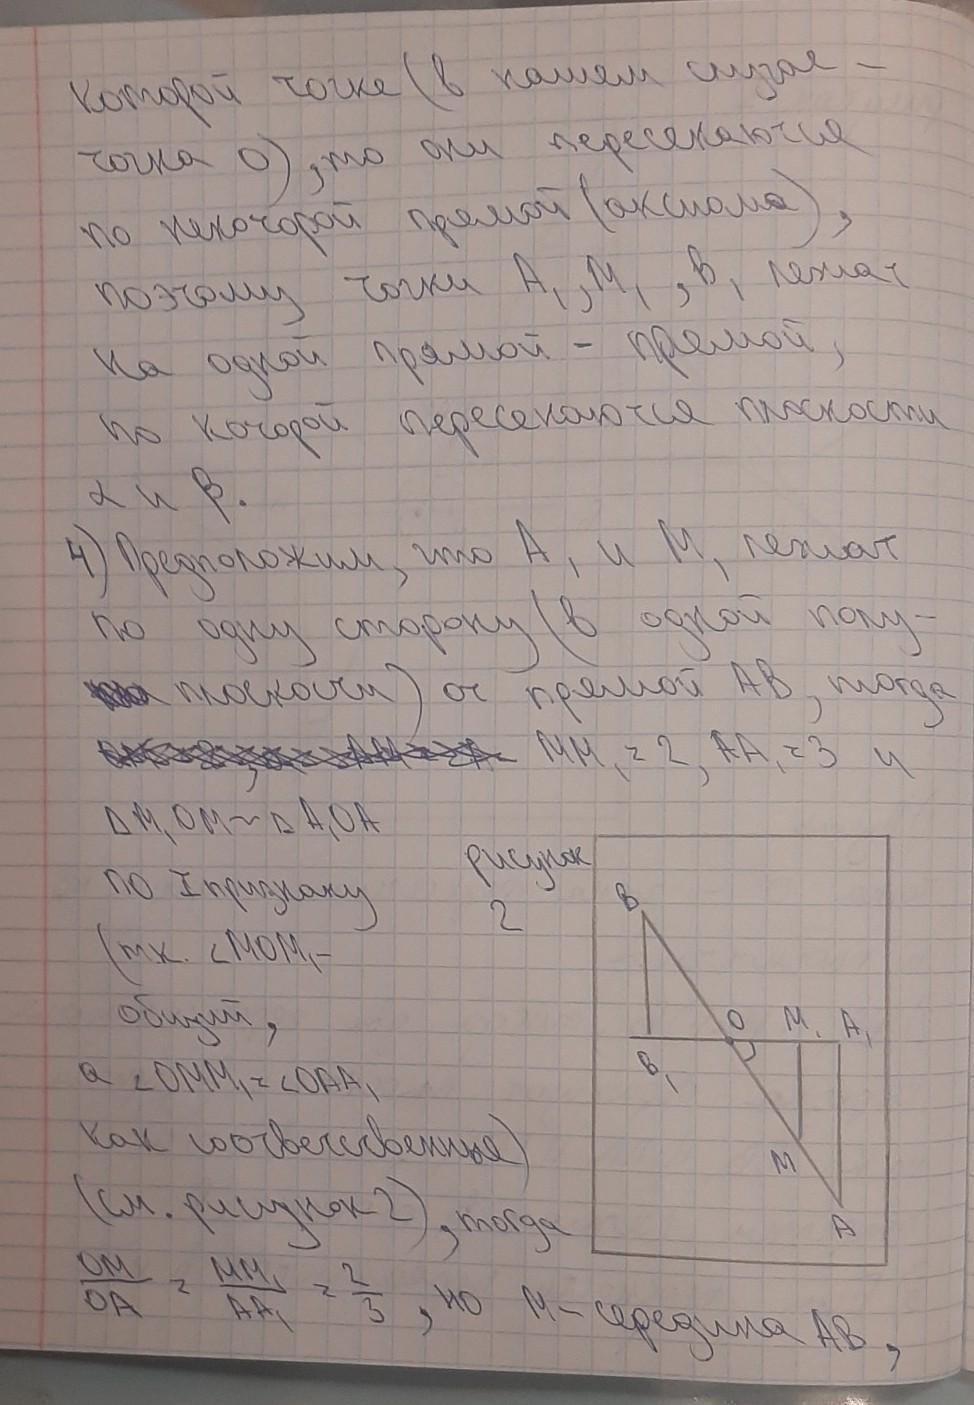 которой точке (в нашем случае –
точка О), то они пересекаются
по некоторой прямой (аксиома),
поэтому точки A₁, M₁, B₁ лежат
на одной прямой – прямой,
по которой пересекаются плоскости
α и β.
4) Предположим, что A₁ и M₁ лежат
по одну сторону (в одной полу-
плоскости) от прямой AB, тогда
MM₁ = 2, AA₁ = 3 и
△M₁OM ~ △A₁OA
по I признаку
(т.к. ∠MOM₁ –
общий,
а ∠OMM₁ = ∠OAA₁
как соответственные)
(см. рисунок 2), тогда
OM/OA = MM₁/AA₁ = 2/3, но M – середина AB,
рисунок
2
B
O
M₁
A₁
B₁
M
A